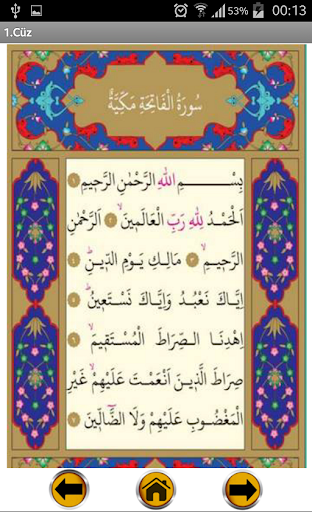 53% 00:13
1.Cüz
سُورَةُ الْفَاتِحَةِ مَكِّيَّةٌ
بِسْمِ اللهِ الرَّحْمٰنِ الرَّحِيمِ ﴿١﴾
اَلْحَمْدُ لِلّٰهِ رَبِّ الْعَالَمِينَۙ ﴿٢﴾ اَلرَّحْمٰنِ
الرَّحِيمِۙ ﴿٣﴾ مَالِكِ يَوْمِ الدِّينِۜ ﴿٤﴾
اِيَّاكَ نَعْبُدُ وَاِيَّاكَ نَسْتَعِينُۜ ﴿٥﴾
اِهْدِنَا الصِّرَاطَ الْمُسْتَقِيمَۙ ﴿٦﴾
صِرَاطَ الَّذِينَ اَنْعَمْتَ عَلَيْهِمْۙ غَيْرِ
الْمَغْضُوبِ عَلَيْهِمْ وَلَا الضَّالِّينَ ﴿٧﴾